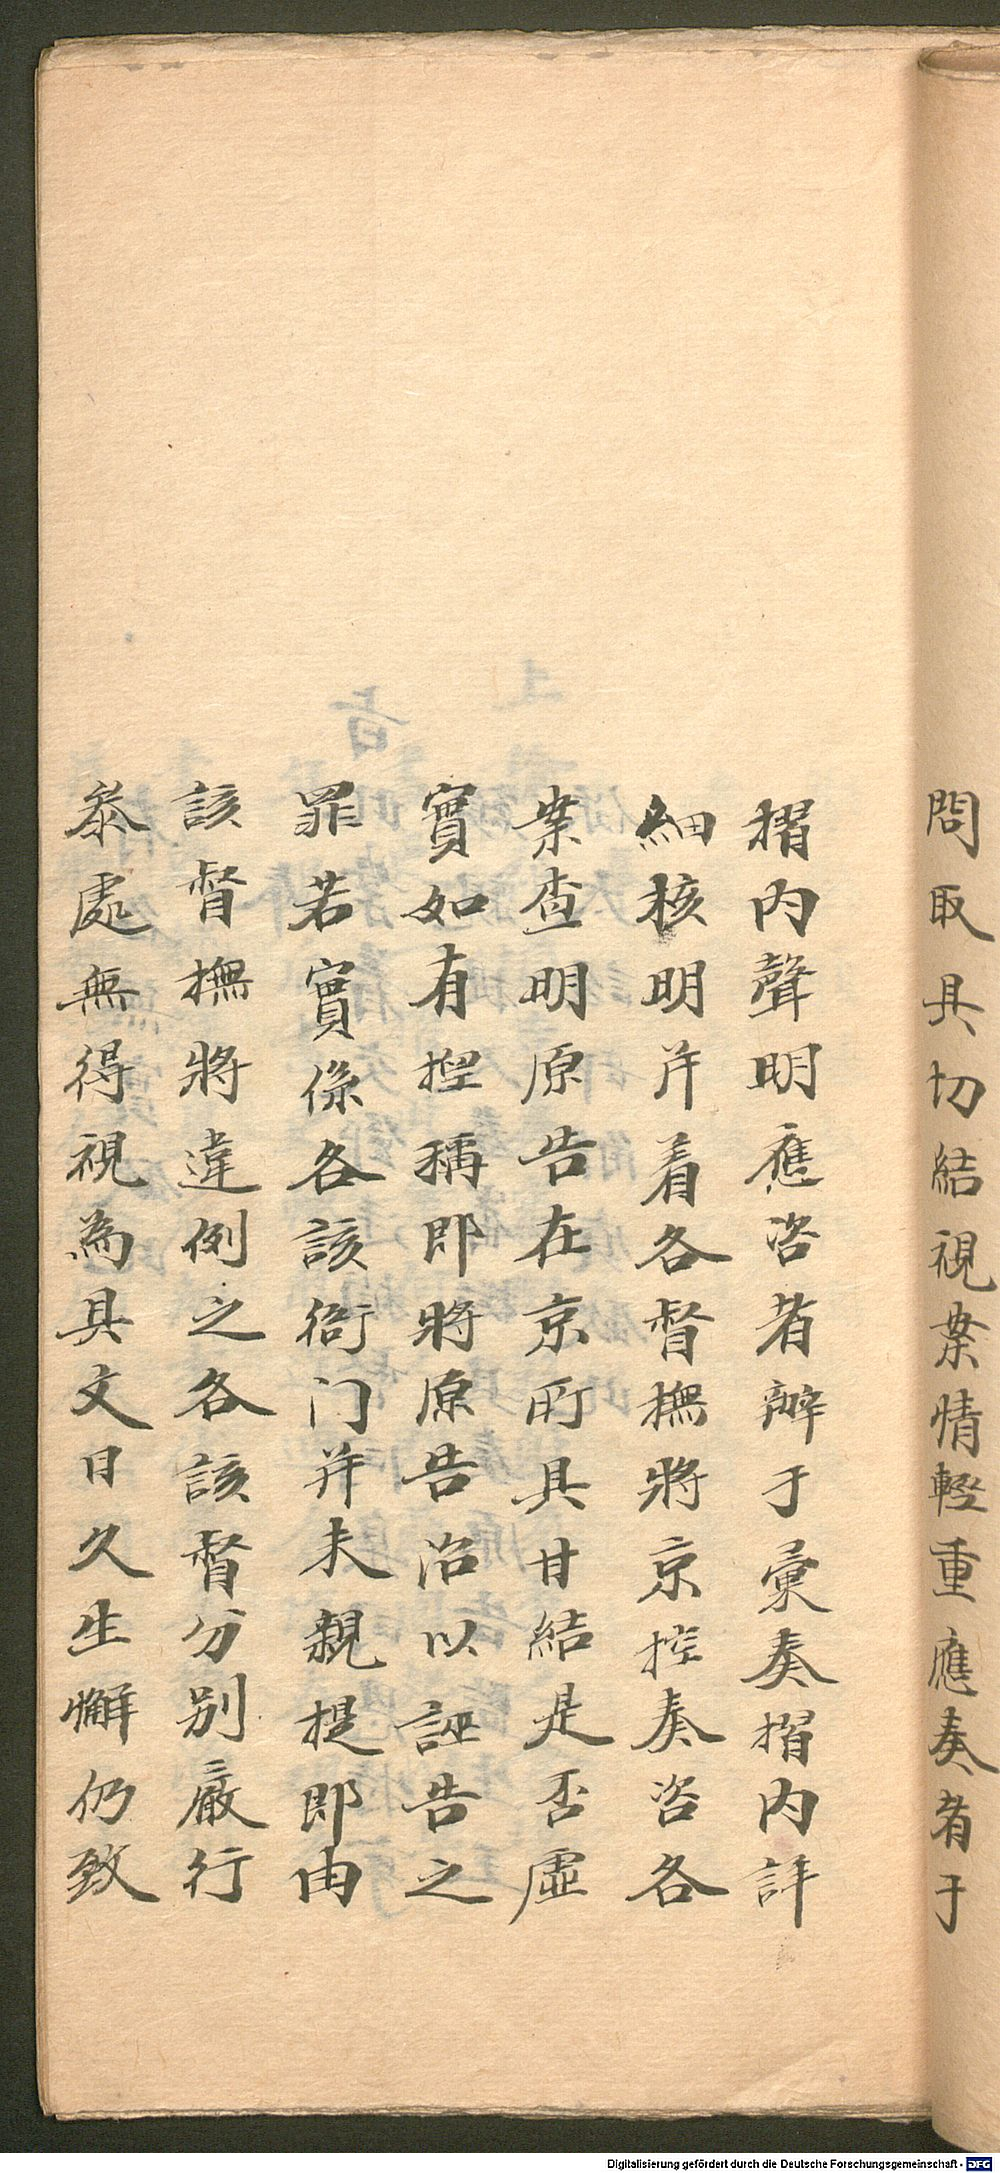 問取具切結視案情輕重應奏者于
摺內聲明應咨者辦于彙奏摺內詳
細核明并着各督撫將京控奏咨各
案查明原告在京所具甘結是否虛
實如有捏稱即將原告治以誣告之
罪若實係各該衙门并未親提即由
該督撫將違例之各該督分別嚴行
叅處無得視為具文日久生懈仍致
Digitalisierung gefördert durch die Deutsche Forschungsgemeinschaft - DFG